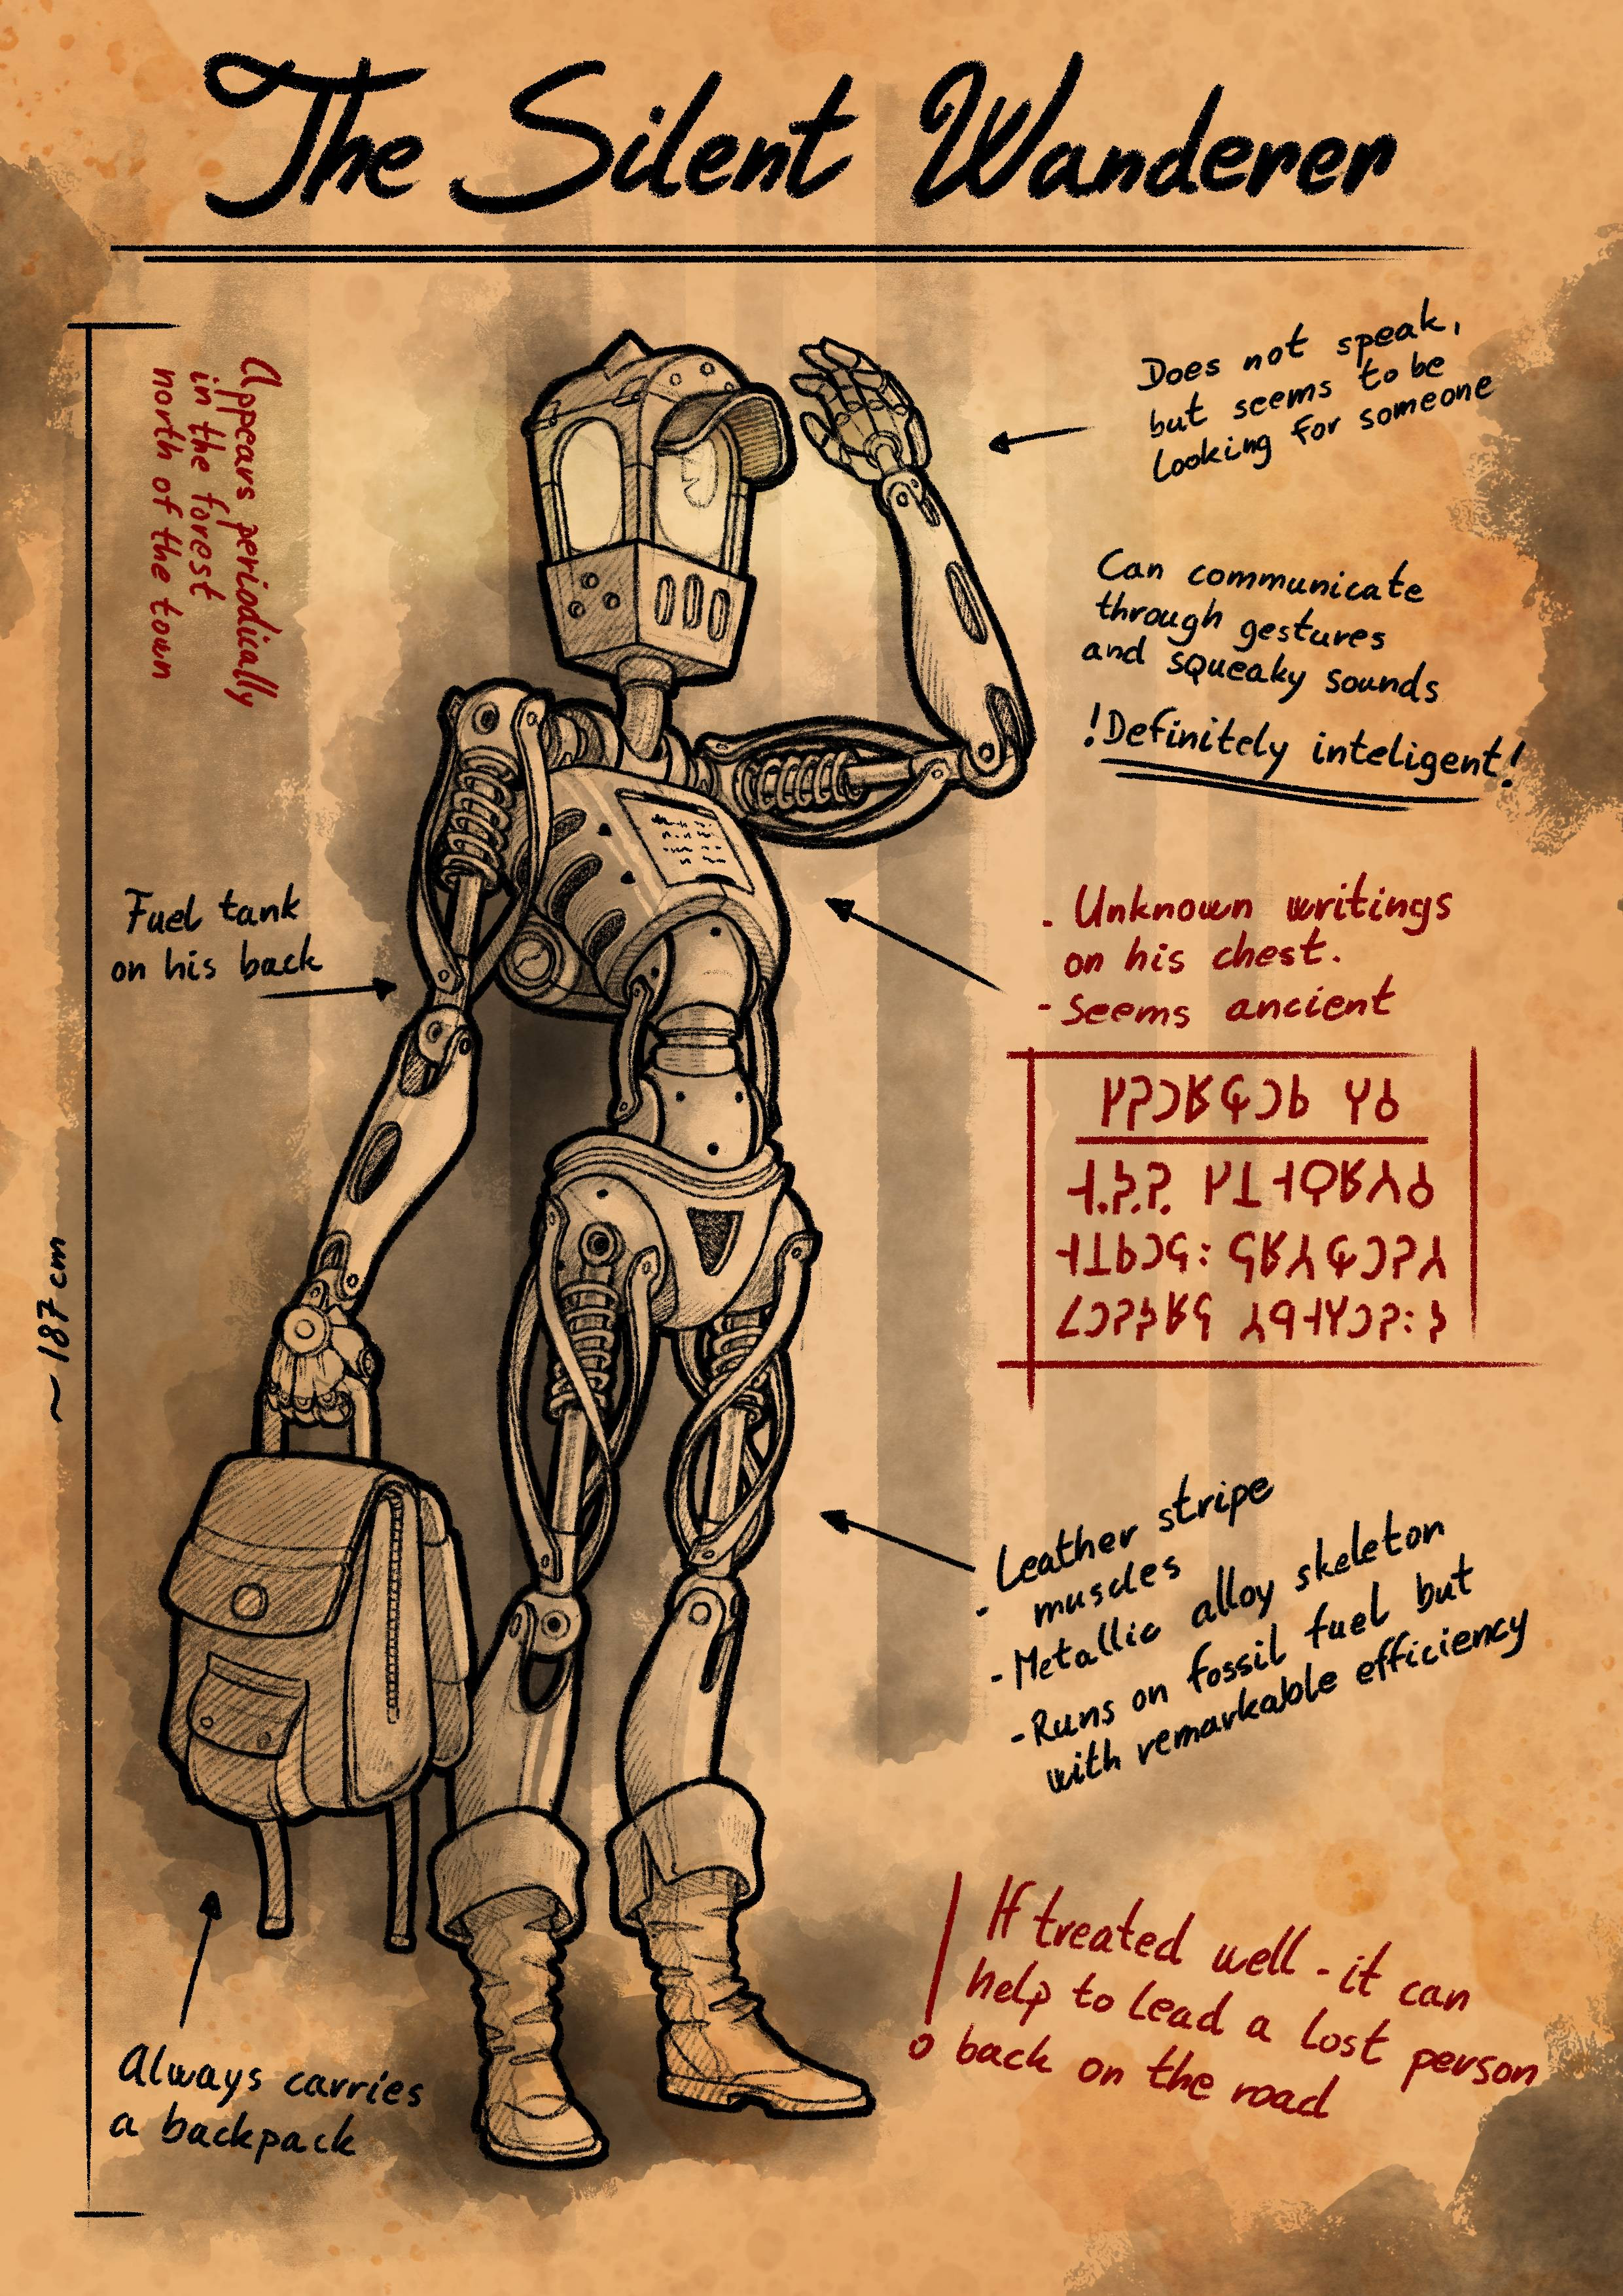 The Silent Wanderer
Appears periodically
in the forest
north of the town
Does not speak,
but seems to be
looking for someone
Can communicate
through gestures
and squeaky sounds
!Definitely inteligent!
Fuel tank
on his back
. Unknown writings
on his chest.
- Seems ancient
~187 cm
Leather stripe
- muscles
- Metallic alloy skeleton
- Runs on fossil fuel but
with remarkable efficiency
Always carries
a backpack
If treated well - it can
help to lead a lost person
back on the road